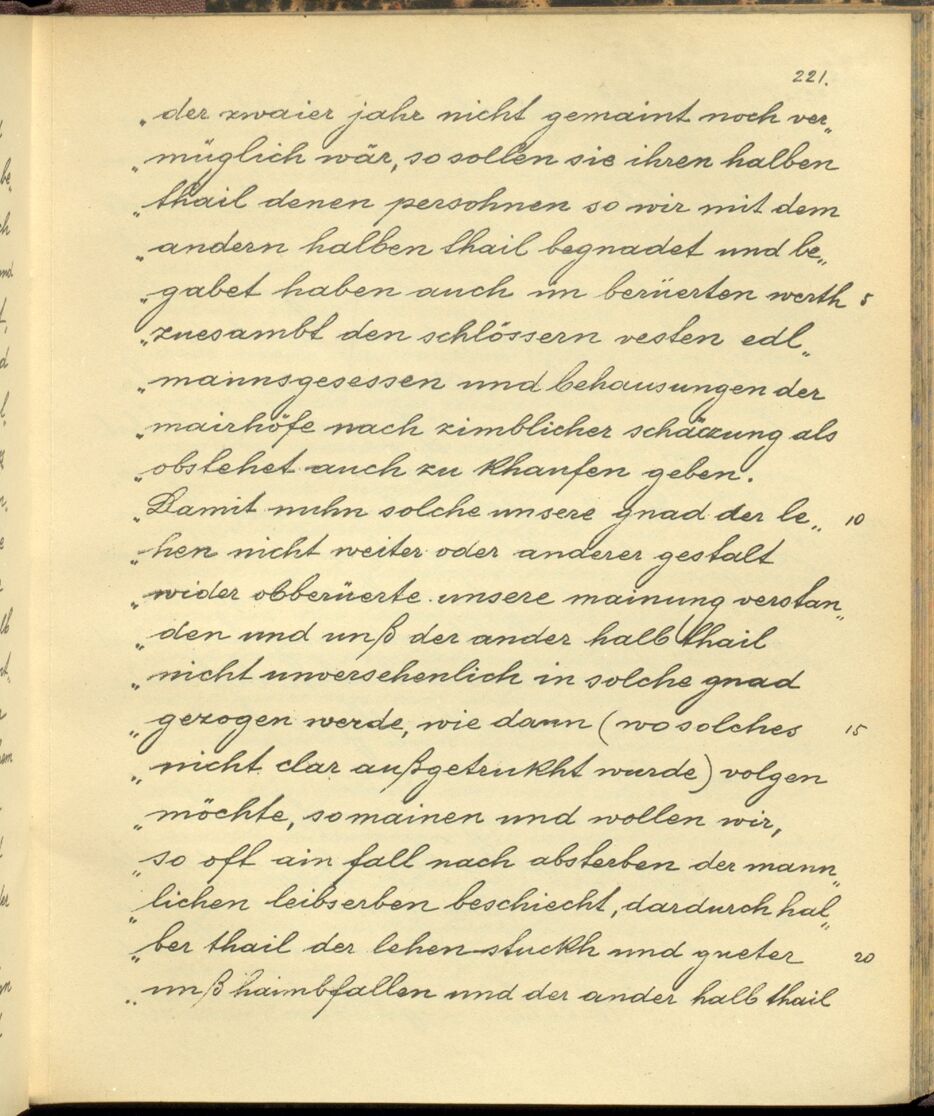 221.
„der zwaier jahr nicht gemaint noch ver„
„müglich wär, so sollen sie ihren halben
„thail denen persohnen so wir mit dem
„andern halben thail begnadet und be„
„gabet haben auch im berüerten werth 5
„zuesambt den schlössern vesten edl„
„mannsgesessen und behausungen der
„mairhöfe nach zimblicher schäzung als
„obstehet auch zu khaufen geben.
„Damit nuhn solche unsere gnad der le„ 10
„hen nicht weiter oder anderer gestalt
„wider obberüerte unsere mainung verstan„
„den und unß der ander halb thail
„nicht unversehenlich in solche gnad
„gezogen werde, wie dann (wo solches 15
„nicht clar außgetrukht wurde) volgen
„möchte, so mainen und wollen wir,
„so oft ain fall nach absterben der mann„
„lichen leibserben beschiecht, dardurch hal„
„ber thail der lehen stuckh und gueter 20
„unß haimbfallen und der ander halb thail